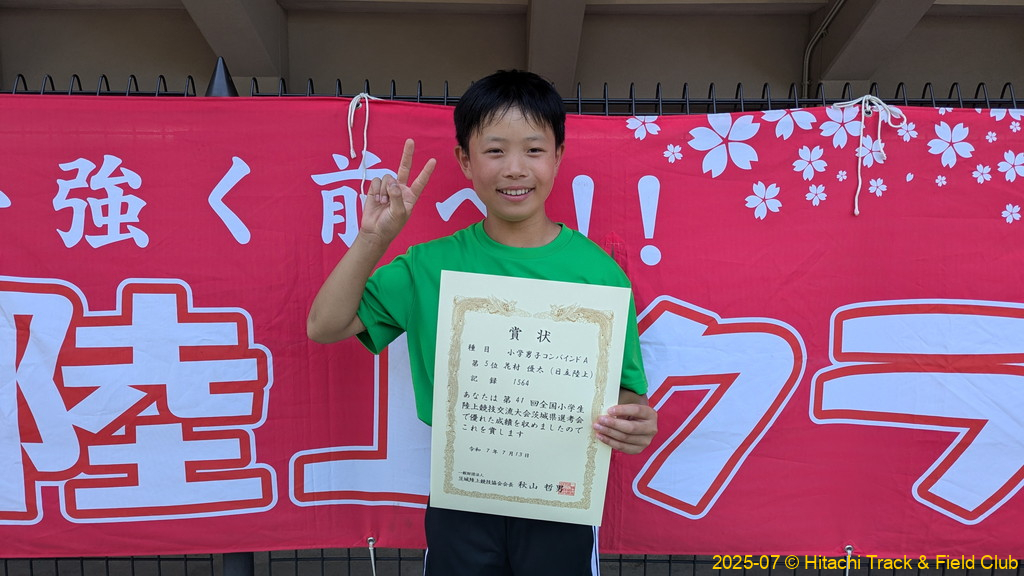 強く前へ!!
陸上クラ
賞状
種目 小学男子コンバインドA
第5位 花村 優木 (日立陸上)
記録 1564
あなたは 第41回全国小学生
陸上競技交流大会茨城県選考会
で優れた成績を収めましたので
これを賞します
令和7年7月13日
一般財団法人
茨城陸上競技協会会長 秋山 哲男
2025-07 © Hitachi Track & Field Club